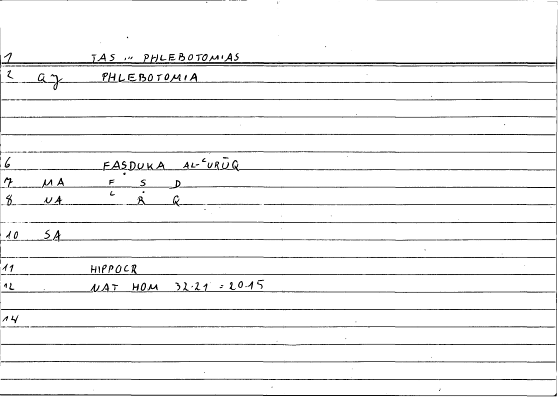 1 TAS ... PHLEBOTOMIAS
2 PHLEBOTOMIA
6 FAṢDUKA AL-ʿURŪQ
7 MA F Ṣ D
8 NA ʿ R Q
10 SA
11 HIPPOCR
12 NAT HOM 32.21 = 20.15
14